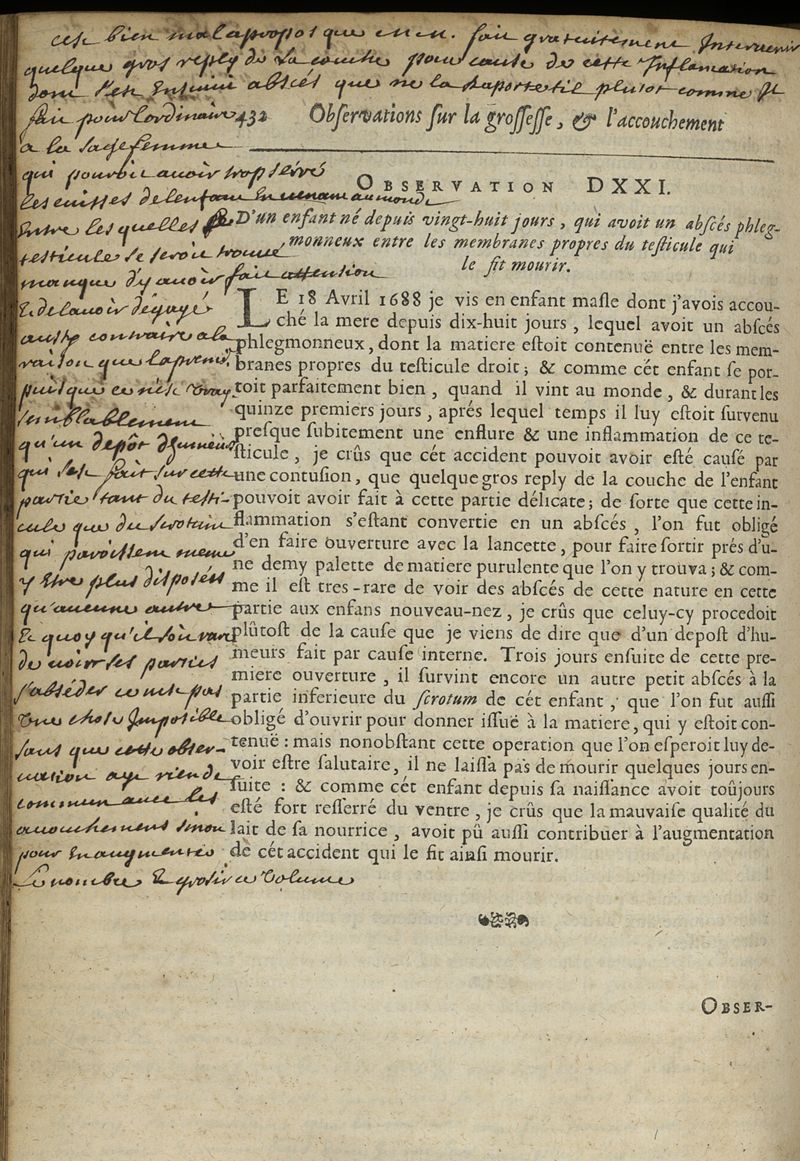 c'est bien mal apropos que m. fait gratuitement Intervenir
quelque gros reply de la couche pour cause de cette Inflamation
dont s'en ensuivi abscés que ne la raporte til plutot comme Il
fait pour l'ordinaire
a la sagefemme
qui pourroit avoir trop serré
les cuisses de l'enfant En venant au monde
Entre les quelles le
testicule se seroit trouvé
manque d'y avoir fait attention
& de l'avoir dégagé
aussy contraire a la
raison que la
puisque ce n'est vray
semblablement
qu'un depôt d'humeurs
qui s'est fait sur cette
partie tant du testi-
cule que du scrotum
qui paroissent meme
y Etre plus disposées
qu'aucune autre
& quoy qu'il soit rare
de voir ses parties
s'abséder ce n'est pas
une chose Impossible
sans que cette obser-
vation aye rien de
commun avec les
accouchemens sinon
pour En augmenter
Le nombre & grossir ce Volume
432 Obſervations ſur la groſſeſſe, & l'accouchement
OBSERVATION DXXI.
D'un enfant né depuis vingt-huit jours, qui avoit un abſcés phleg-
monneux entre les membranes propres du teſticule qui
le fit mourir.
LE 18 Avril 1688 je vis en enfant maſle dont j'avois accou-
ché la mere depuis dix-huit jours, lequel avoit un abſcés
phlegmonneux, dont la matiere eſtoit contenuë entre les mem-
branes propres du teſticule droit; & comme cét enfant ſe por-
toit parfaitement bien, quand il vint au monde, & durant les
quinze premiers jours, aprés lequel temps il luy eſtoit ſurvenu
preſque ſubitement une enflure & une inflammation de ce te-
ſticule, je crûs que cét accident pouvoit avoir eſté cauſé par
une contuſion, que quelque gros reply de la couche de l'enfant
pouvoit avoir fait à cette partie délicate; de ſorte que cette in-
flammation s'eſtant convertie en un abſcés, l'on fut obligé
d'en faire ouverture avec la lancette, pour faire ſortir prés d'u-
ne demy palette de matiere purulente que l'on y trouva; & com-
me il eſt tres-rare de voir des abſcés de cette nature en cette
partie aux enfans nouveau-nez, je crûs que celuy-cy procedoit
plûtoſt de la cauſe que je viens de dire que d'un depoſt d'hu-
meurs fait par cauſe interne. Trois jours enſuite de cette pre-
miere ouverture, il ſurvint encore un autre petit abſcés à la
partie inferieure du ſcrotum de cét enfant, que l'on fut auſſi
obligé d'ouvrir pour donner iſſuë à la matiere, qui y eſtoit con-
tenuë: mais nonobſtant cette operation que l'on eſperoit luy de-
voir eſtre ſalutaire, il ne laiſſa pas de mourir quelques jours en-
ſuite: & comme cét enfant depuis ſa naiſſance avoit toûjours
eſté fort reſſerré du ventre, je crûs que la mauvaiſe qualité du
lait de ſa nourrice, avoit pû auſſi contribuer à l'augmentation
de cét accident qui le fit ainſi mourir.
OBSER-